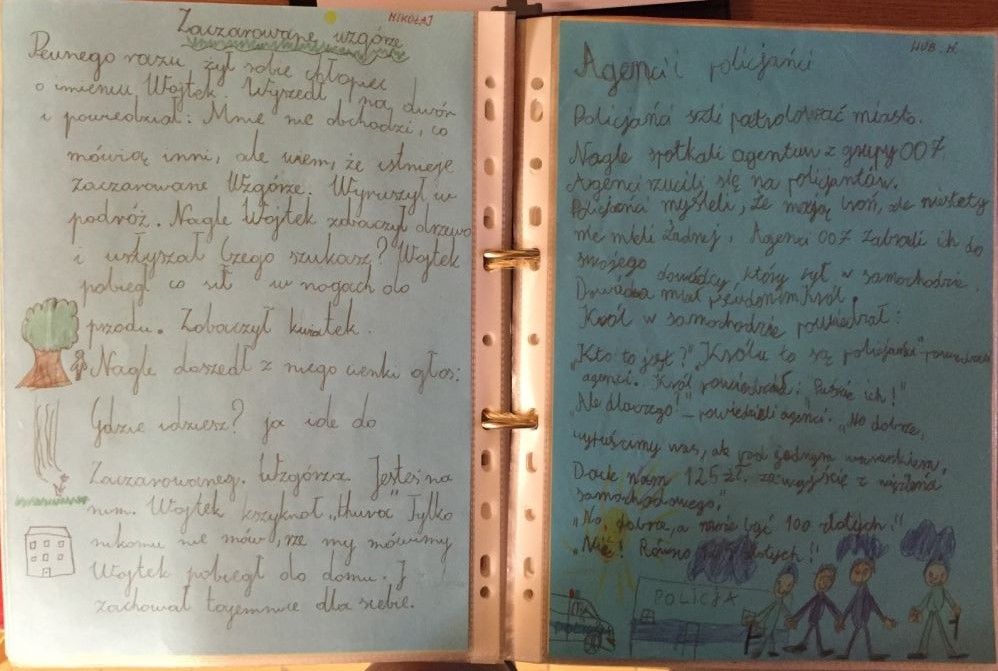 MIKOŁAJ
Zaczarowane wzgórze
Pewnego razu żył sobie chłopiec
o imieniu Wojtek. Wyszedł na dwór
i powiedział: Mnie nie obchodzi, co
mówią inni, ale wiem, że istnieje
Zaczarowane Wzgórze. Wyruszył w
podróż. Nagle Wojtek zobaczył drzewo
i usłyszał Czego szukasz? Wojtek
pobiegł co sił w nogach do
przodu. Zobaczył kwiatek.
Nagle doszedł z niego cienki głos:
Gdzie idziesz? ja ide do
Zaczarowaneg. Wzgórza. Jesteś na
nim. Wojtek kszyknoł "Hura" Tylko
nikomu nie mów, rze my mówimy
Wojtek pobiegł do domu. I
zachował tajemnice dla siebie.
HUB. N.
Agenci i policjańci
Policjańci szli patrolować miasto.
Nagle spotkali agentuw z grupy 007.
Agenci rzucili się na policjantów.
Policjańci myśleli, że mają broń, ale niestety
nie mieli żadnej. Agenci 007 zabrali ich do
swojego
dowódcy, który był w samochodzie.
Dowudca miał pseudonim Król.
Król w samochodzie powiedział:
"Kto to jest?" "Królu to są policjańci" powiedzieli
agenci. Król powiedział: Puście ich!"
"Nie dlaczego!" – powiedzieli agenci. "No dobrze,
wypuścimy was, ale pod jednym warunkiem,
Dacie nam 125 zł. za wyjście z więzienia
samochodowego."
"No, dobra, a może być 100 złotych!"
"Nie! Równo złotych!"
POLICJA